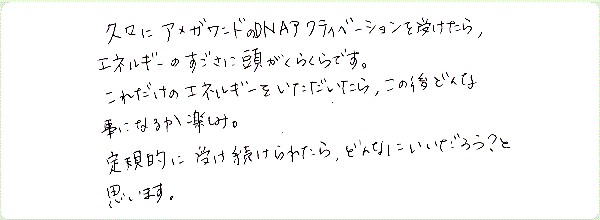 久々に アメガワンドのDNAアクティベーションを受けたら,
エネルギーのすごさに頭がくらくらです。
これだけのエネルギーをいただいたら,この後どんな
事になるか楽しみ。
定期的に受け続けられたら,どんなにいいだろう?と
思います。